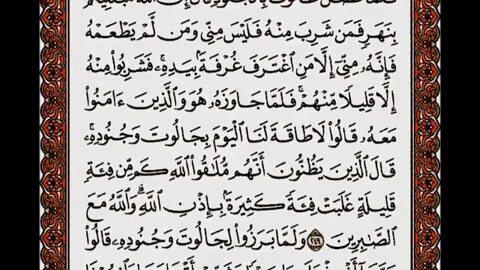 بِنَهَرٍ فَمَن شَرِبَ مِنْهُ فَلَيْسَ مِنِّي وَمَن لَّمْ يَطْعَمْهُ
فَإِنَّهُۥ مِنِّيٓ إِلَّا مَنِ ٱغْتَرَفَ غُرْفَةَۢ بِيَدِهِۦۚ فَشَرِبُوا۟ مِنْهُ
إِلَّا قَلِيلًا مِّنْهُمْۚ فَلَمَّا جَاوَزَهُۥ هُوَ وَٱلَّذِينَ ءَامَنُوا۟
مَعَهُۥ قَالُوا۟ لَا طَاقَةَ لَنَا ٱلْيَوْمَ بِجَالُوتَ وَجُنُودِهِۦۚ
قَالَ ٱلَّذِينَ يَظُنُّونَ أَنَّهُم مُّلَـٰقُوا۟ ٱللَّهِ كَم مِّن فِئَةٍ
قَلِيلَةٍ غَلَبَتْ فِئَةً كَثِيرَةَۢ بِإِذْنِ ٱللَّهِۗ وَٱللَّهُ مَعَ
ٱلصَّـٰبِرِينَ ٢٤٩ وَلَمَّا بَرَزُوا۟ لِجَالُوتَ وَجُنُودِهِۦ قَالُوا۟